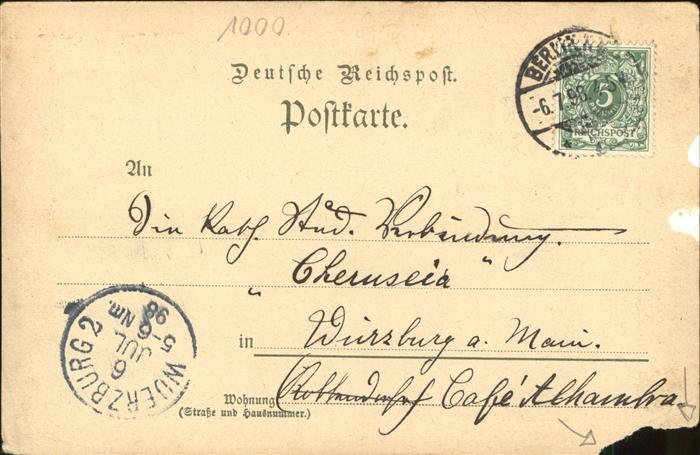 1000.
Deutsche Reichspost.
Postkarte.
BERLIN
-6.7.98
5
REICHSPOST
An
Die Kath. Stud. Verbindung.
„Cheruscia"
in Würzburg a. Main.
Wohnung Café Alhambra
(Straße und Hausnummer.)
WUERZBURG 2
6
JUL
5-6 Nm.
98